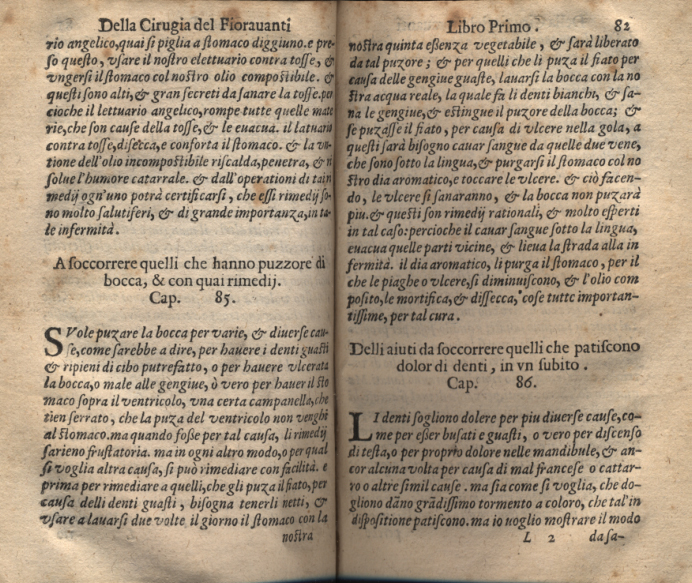 Della Cirugia del Fiorauanti
rio angelico,quai si piglia a stomaco diggiuno.e pre-
so questo, vsare il nostro elettuario contra tosse, &
vngersi il stomaco col nostro olio compostibile. &
questi sono alti,& gran secreti da sanare la tosse.per
cioche il lettuario angelico,rompe tutte quelle mate
rie,che son cause della tosse,& le euacua. il latuaro
contra tosse,disecca,e conforta il stomaco. & la vn
tione dell'olio incompostibile riscalda,penetra, & ri
solue l'humore catarrale. & dall'operationi di tai
medij ogn'uno potrà certificarsi, che essi rimedij so
no molto salutiferi, & di grande importanza,in ta-
le infermità.
A soccorrere quelli che hanno puzzore di
bocca, & con quai rimedij.
Cap. 85.
SVole puzare la bocca per varie, & diuerse cau-
se,come sarebbe a dire, per hauere i denti guasti
& ripieni di cibo putrefatto, o per hauere vlcerata
la bocca,o male alle gengiue, ò vero per hauer il sto
maco sopra il ventricolo, vna certa campanella,che
tien serrato, che la puza del ventricolo non venghi
al stomaco.ma quando fosse per tal causa, li rimedij
sarieno frustatoria. ma in ogni altro modo,o per qual
si voglia altra causa, si può rimediare con facilità. e
prima per rimediare a quelli,che gli puza il fiato,per
causa delli denti guasti, bisogna tenerli netti, &
vsare a lauarsi due volte il giorno il stomaco con la
nostra
Libro Primo. 82
nostra quinta essenza vegetabile, & sarà liberato
da tal puzore ; & per quelli che li puza il fiato per
causa delle gengiue guaste, lauarsi la bocca con la no
stra acqua reale, la quale fa li denti bianchi, & sa-
na le gengiue,& estingue il puzore della bocca; &
se puzasse il fiato, per causa di vlcere nella gola, a
questi sarà bisogno cauar sangue da quelle due vene,
che sono sotto la lingua,& purgarsi il stomaco col no
stro dia aromatico,e toccare le vlcere. & ciò facen-
do, le vlcere si sanaranno, & la bocca non puzarà
piu.& questi son rimedij rationali, & molto esperti
in tal caso:percioche il cauar sangue sotto la lingua,
euacua quelle parti vicine, & lieua la strada alla in
fermità. il dia aromatico, li purga il stomaco, per il
che le piaghe o vlcere,si diminuiscono, & l'olio com
posito,le mortifica,& dissecca, cose tutte importan-
tissime, per tal cura.
Delli aiuti da soccorrere quelli che patiscono
dolor di denti, in vn subito .
Cap. 86.
LI denti sogliono dolere per piu diuerse cause,co-
me per esser busati e guasti, o vero per discenso
di testa,o per proprio dolore nelle mandibule,& an-
cor alcuna volta per causa di mal francese o cattar-
ro o altre simil cause . ma sia come si voglia, che do-
gliono dãno grãdissimo tormento a coloro, che tal'in
dispositione patiscono.ma io uoglio mostrare il modo
L 2 da sa-